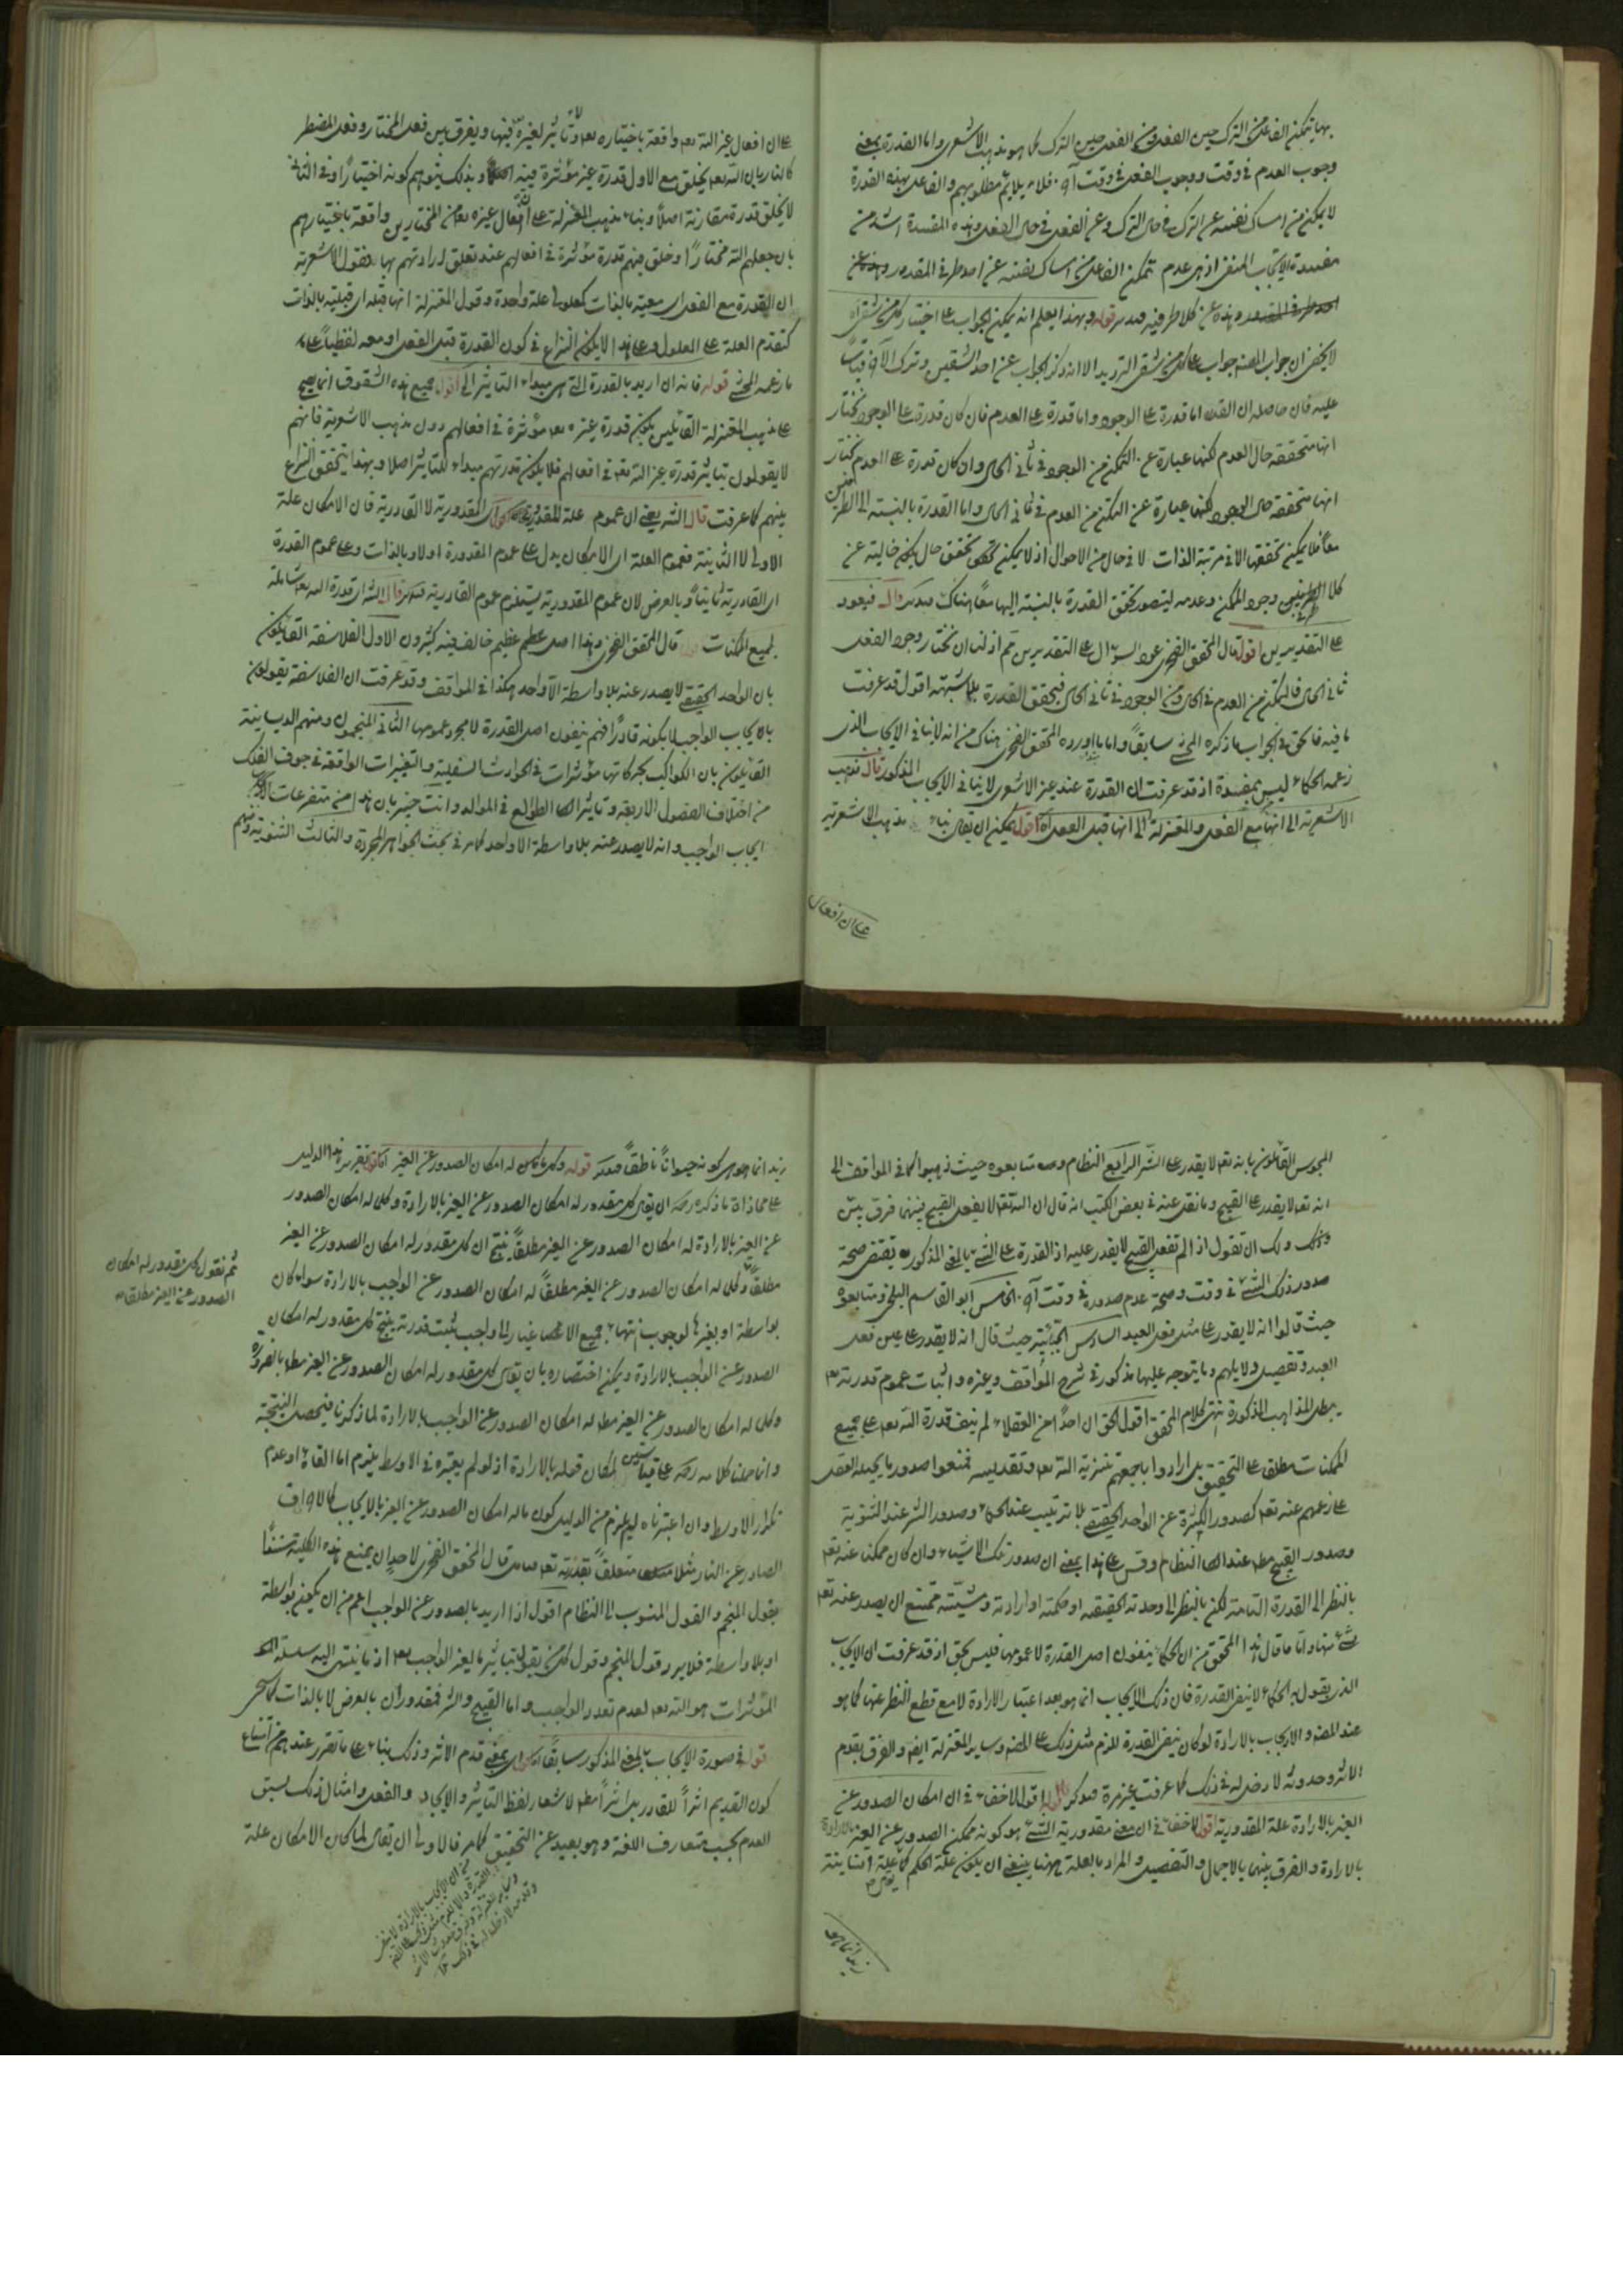 بها يتمكن الفاعل من الترك حين الفعل ومن الفعل حين الترك كما هو مذهب الاشعرى واما القدرة بمعنى
وجوب العدم فى وقت ووجوب الفعل فى وقت آخر فلا يلايم مطلوبهم والفاعل بهذه القدرة
لا يمكن من امساك نفسه عن الترك فى حال الترك وعن الفعل فى حال الفعل وهذه المفسدة اشد من
مفسدة الايجاب المنفى اذ هى عدم تمكن الفاعل من امساك نفسه عن احد طرفى المقدور وهذه عن
وهذه عن كلا طرفيه قوله وبهذا يعلم انه يمكن الجواب على اختيار كل من شقى آه
لا يخفى ان جواب المصنف جواب على كل من شقى الترديد الا انه ذكر الجواب عن احد الشقين وترك الآخر قياسًا
عليه فان حاصله ان القدرة اما قدرة على الوجود واما قدرة على العدم فان كان قدرة على الوجود نختار
انها متحققة حال العدم لكنها عبارة عن التمكن من الوجود فى ثانى الحال وان كان قدرة على العدم نختار
انها متحققة حال الوجود لكنها عبارة عن التمكن من العدم فى ثانى الحال واما القدرة بالنسبة الى الطرفين
معًا فلا يمكن تحققها الا فى مرتبة الذات لا فى حال من الاحوال اذ لا يمكن تحقق حال يكون خالية عن
كلا الطرفين وجود الممكن وعدمه ليتصور تحقق القدرة بالنسبة اليها معًا هناك قال فيعود
على التقديرين اقول قال المحقق الفخرى عود السؤال على التقديرين ثم اذ لنا ان نختار وجود الفعل
ثانى الحال فالتمكن من العدم فى الحال ومن الوجود فى ثانى الحال فيتحقق القدرة بلا شبهة اقول قد عرفت
ما فيه فالحق فى الجواب ما ذكره المحشى سابقًا واما ما اورده المحقق الفخرى هناك من انه لا ينافى الايجاب الذى
زعمه الحكماء ليس بمفسدة اذ قد عرفت ان القدرة عند غير الاشعرى لا ينافى الايجاب المذكور قال فذهب
الاشعرية الى انها مع الفعل والمعتزلة الى انها قبل الفعل آه اقول يمكن ان يقال بناء مذهب الاشعرية
على ان افعال
على ان افعال غير الله تعالى واقعة باختياره تعالى ولا تأثير لغيره فيها ويفرق بين فعل المختار وفعل المضطر
كالنار بان الله تعالى يخلق مع الاول قدرة غير مؤثرة فيه وبذلك يتوهم كونه اختيارًا وفى الثانى
لا يخلق قدرة مقارنة اصلًا وبناء مذهب المعتزلة على ان افعال غيره تعالى من المختارين واقعة باختيارهم
بان جعلهم الله مختارًا وخلق فيهم قدرة مؤثرة فى افعالهم عند تعلق ارادتهم بها فقول الاشعرية
ان القدرة مع الفعل اى معية بالذات كمعلولى علة واحدة وقول المعتزلة انها قبله اى قبلية بالذات
كتقدم العلة على المعلول وعلى هذا لا يكون النزاع فى كون القدرة قبل الفعل او معه لفظيًا على
ما زعمه المحشى قوله فانه ان اريد بالقدرة التى هى مبداء التاثير الى اقول جميع هذه الشقوق انما يصح
على مذهب المعتزلة القائلين بكون قدرة غيره تعالى مؤثرة فى افعالهم دون مذهب الاشعرية فانهم
لا يقولون بتاثير قدرة غير الله تعالى فى افعالهم فلا يكون قدرتهم مبداء للتاثير اصلا وبهذا يتحقق النزاع
بينهم كما عرفت قال الشه يعنى ان عموم علة المقدورية اقول اى المقدورية لا القادرية فان الامكان علة
الاولى لا الثانية فعموم العلة اى الامكان يدل على عموم المقدورة اولا وبالذات وعلى عموم القدرة
اى القادرية ثانيًا وبالعرض لان عموم المقدورية يستلزم عموم القادرية قال الشه اى قدرة الله تعالى شاملة
لجميع الممكنات قال المحقق الفخرى وهذا اصل عظيم خالف فيه كثيرون الاول الفلاسفة القائلون
بان الواحد الحقيقى لا يصدر عنه بلا واسطة الا واحد هكذا فى المواقف وقد عرفت ان الفلاسفة يقولون
بالايجاب الواجب لا بكونه قادرًا فهم ينفون اصل القدرة لا مجرد عمومها الثانى المنجمون ومنهم الصابئة
القائلون بان الكواكب بحركاتها مؤثرات فى الحوادث السفلية والتغيرات الواقعة فى جوف الفلك
من اختلاف الفصول الاربعة وتاثيرات الطوالع فى المواليد وانت خبير بان هذا من متفرعات
ايجاب الواجب وانه لا يصدر عنه بلا واسطة الا واحد كما مر فى بحث الجواهر المجردة والثالث الثنوية ومنهم
المجوس القائلون بانه تعالى لا يقدر على الشر الرابع النظام ومتابعوه حيث ذهبوا كما فى المواقف الى
انه تعالى لا يقدر على القبيح وما نقل عنه فى بعض الكتب انه قال ان الله تعالى لا يفعل القبيح فبينهما فرق بين
وذلك ولك ان تقول اذا لم يفعل القبيح لا يقدر عليه اذ القدرة على الشئ بالمعنى المذكور يقتضى صحة
صدور ذلك الشئ فى وقت وصحة عدم صدوره فى وقت آخر الخامس ابو القاسم البلخى ومتابعوه
حيث قالوا انه لا يقدر على مثل فعل العبد السادس الجبائية حيث قال انه لا يقدر على عين فعل
العبد وتفصيل دلايلهم وما يتوجه عليها مذكور فى شرح المواقف وغيره واثبات عموم قدرته تعالى
يبطل المذاهب المذكورة انتهى كلام المحقق اقول الحق ان احدًا من العقلاء لم ينف قدرة الله تعالى على جميع
الممكنات مطلقا على التحقيق بل ارادوا باجمعهم تنزيه الله تعالى وتقديسه فمنعوا صدور ما يحيله العقل
على زعمهم عنه تعالى كصدور الكثرة عن الواحد الحقيقى بلا ترتيب عند الحكماء وصدور الشر عند الثنوية
وصدور القبيح مطلقا عند النظام وقس على هذا بمعنى ان صدور تلك الاشياء وان كان ممكنا عنه تعالى
بالنظر الى القدرة التامة لكن بالنظر الى وحدته الحقيقية او حكمته او ارادته ومشيته ممتنع ان يصدر عنه تعالى
شئ منها واما ما قال هذا المحقق من ان الحكماء ينفون اصل القدرة لا عمومها فليس بحق اذ قد عرفت ان الايجاب
الذى يقول به الحكماء لا ينفى القدرة فان ذلك الايجاب انما هو بعد اعتبار الارادة لا مع قطع النظر عنها كما هو
عند المصنف والايجاب بالارادة لو كان ينفى القدرة للزم مثل ذلك على المصنف وساير المعتزلة ايضا والفرق بقدم
الاثر وحدوثه لا دخل له فى ذلك كما عرفت غير مرة قوله اقول لا خفاء فى ان امكان الصدور عن
الغير بالارادة علة المقدورية اقول لا خفاء فى ان معنى مقدورية الشئ هو كونه ممكن الصدور عن الغير بالارادة
بالارادة والفرق بينهما بالاجمال والتفصيل والمراد بالعلة ههنا ينبغى ان يكون علة الحكم
زيد انما هو
زيد انما هو لكونه حيوانًا ناطقًا قوله وكل ما كان له امكان الصدور عن الغير اقول تقرير هذا الدليل
على محاذاة ما ذكره رحمه ان يقال كل مقدور له امكان الصدور عن الغير بالارادة وكل له امكان الصدور
عن الغير بالارادة له امكان الصدور عن الغير مطلقًا ينتج ان كل مقدور له امكان الصدور عن الغير
مطلقًا وكل له امكان الصدور عن الغير مطلقًا له امكان الصدور عن الواجب بالارادة سواء كان
ثم نقول كل مقدور له امكان
الصدور عن الغير مطلقا
بواسطة او بغيرها لوجوب انتهاء جميع الاغيار الى الواجب يثبت قدرته ينتج كل مقدور له امكان
الصدور عن الواجب بالارادة ويمكن اختصاره بان يقال كل مقدور له امكان الصدور عن الغير مطلقا بالضرورة
وكل له امكان الصدور عن الغير مطلقا له امكان الصدور عن الواجب بالارادة لما ذكرنا فيحصل النتيجة
وانما حملنا كلامه رحمه على قياسين لمكان قوله بالارادة اذ لو لم يعتبره فى الاوسط يلزم اما الغاؤه او عدم
تكرار الاوسط وان اعتبرناه لم يلزم من الدليل كون ماله امكان الصدور عن الغير بالايجاب كالاحراق
الصادر عن النار مثلا متعلقًا بقدرته تعالى قال المحقق الفخرى لاحد ان يمنع هذه الكلية مستندًا
بقول المنجم والقول المنسوب الى النظام اقول اذا اريد بالصدور عن الواجب اعم من ان يكون بواسطة
او بلا واسطة فلا يرد قول المنجم وقول كل من يقول بتاثير ما لغير الواجب تعالى اذ ما ينتهى اليه سلسلة
المؤثرات هو الله تعالى لعدم تعدد الواجب واما القبيح والشر فمقدوران بالعرض لا بالذات
قوله فى صورة الايجاب بالمعنى المذكور سابقًا اقول اى بمعنى قدم الاثر وذلك بناء على ما تقرر عندهم من امتناع
كون القديم اثرًا للقادر بل اثرًا مطلقا لاشعار لفظ التاثير والايجاد والفعل وامثال ذلك بسبق
العدم بحسب متعارف اللغة وهو بعيد عن التحقيق كما مر فالاولى ان يقال لما كان الامكان علة